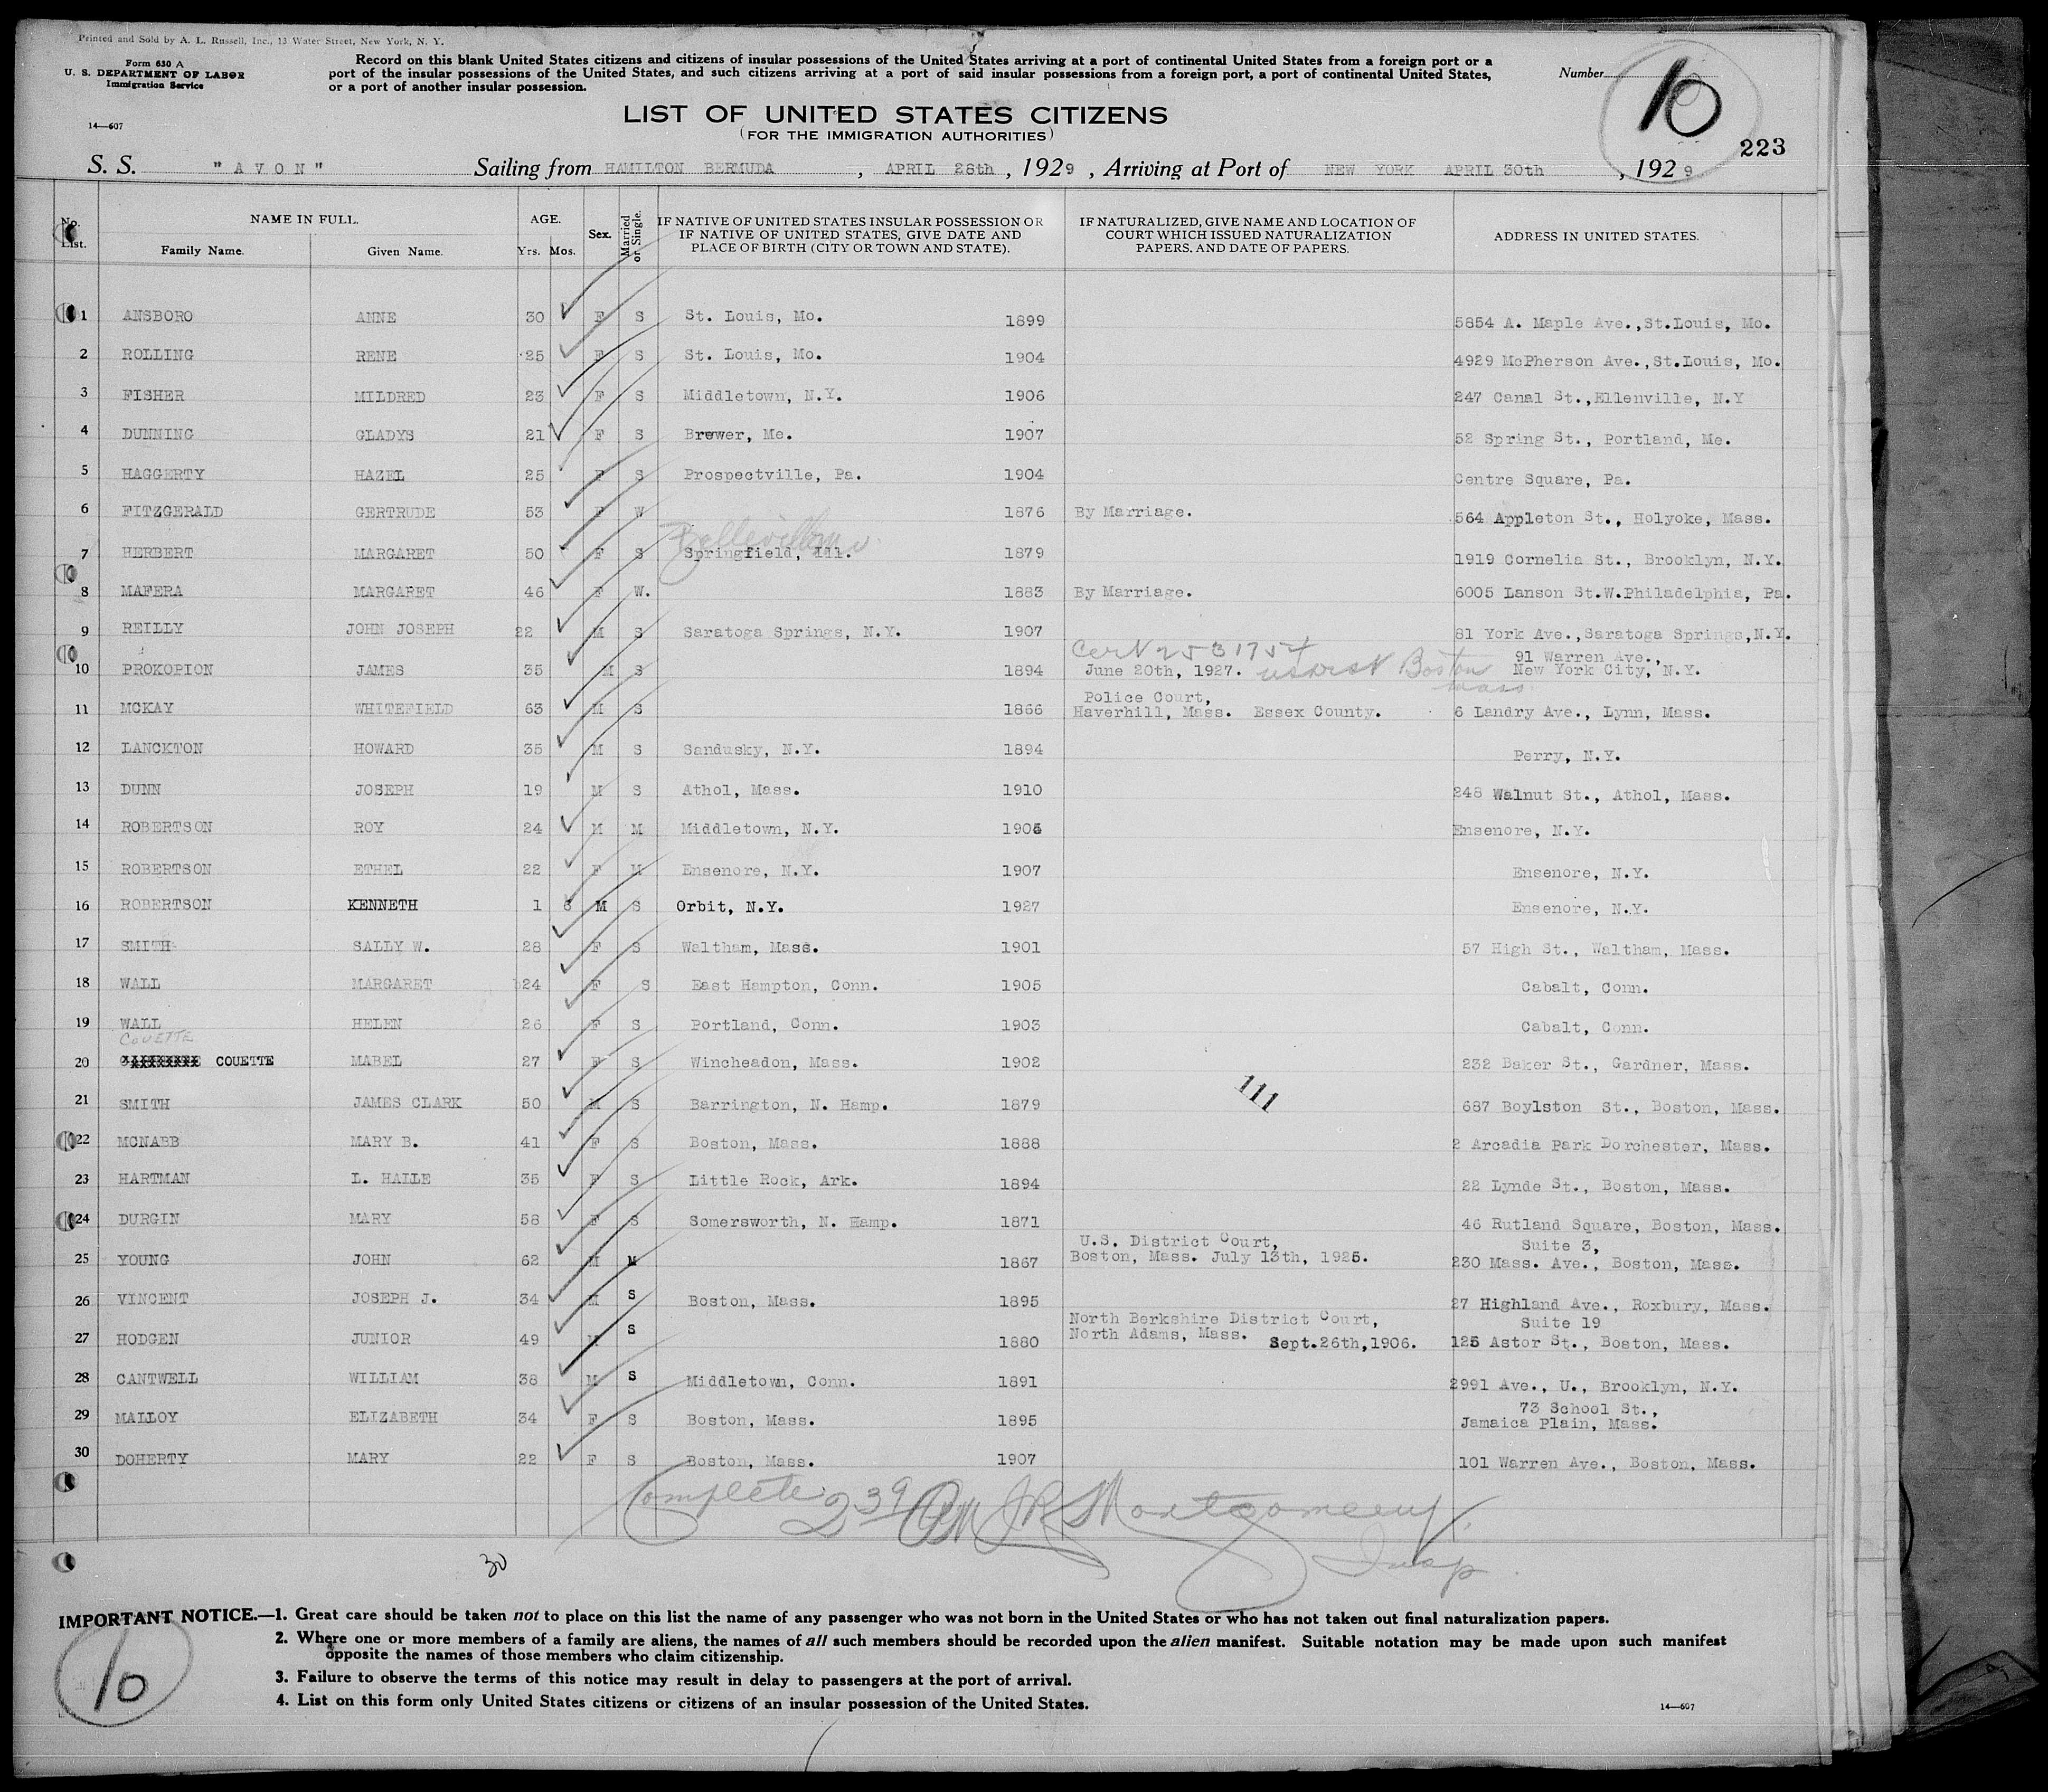 Printed and Sold by A. L. Russell, Inc., 13 Water Street, New York, N. Y.
Form 630 A
U. S. DEPARTMENT OF LABOR
Immigration Service
14—607
Record on this blank United States citizens and citizens of insular possessions of the United States arriving at a port of continental United States from a foreign port or a
port of the insular possessions of the United States, and such citizens arriving at a port of said insular possessions from a foreign port, a port of continental United States,
or a port of another insular possession.
Number
10
223
LIST OF UNITED STATES CITIZENS
(FOR THE IMMIGRATION AUTHORITIES)
S. S. "AVON" Sailing from HAMILTON BERMUDA, APRIL 28th, 1929, Arriving at Port of NEW YORK APRIL 30th, 1929
No. List. NAME IN FULL. Family Name. Given Name. AGE. Yrs. Mos. Sex. Married or Single. IF NATIVE OF UNITED STATES INSULAR POSSESSION OR IF NATIVE OF UNITED STATES, GIVE DATE AND PLACE OF BIRTH (CITY OR TOWN AND STATE). IF NATURALIZED, GIVE NAME AND LOCATION OF COURT WHICH ISSUED NATURALIZATION PAPERS. AND DATE OF PAPERS. ADDRESS IN UNITED STATES.
1 ANSBORO ANNE 30 F S St. Louis, Mo. 1899 5854 A. Maple Ave.,St.Louis, Mo.
2 ROLLING RENE 25 F S St. Louis, Mo. 1904 4929 McPherson Ave.,St.Louis, Mo.
3 FISHER MILDRED 23 F S Middletown, N.Y. 1906 247 Canal St.,Ellenville, N.Y
4 DUNNING GLADYS 21 F S Brewer, Me. 1907 52 Spring St., Portland, Me.
5 HAGGERTY HAZEL 25 F S Prospectville, Pa. 1904 Centre Square, Pa.
6 FITZGERALD GERTRUDE 53 F W 1876 By Marriage. 564 Appleton St., Holyoke, Mass.
7 HERBERT MARGARET 50 F S Springfield, Ill. 1879 1919 Cornelia St., Brooklyn, N.Y.
8 MAFERA MARGARET 46 F W. 1883 By Marriage. 6005 Lanson St.W.Philadelphia, Pa.
9 REILLY JOHN JOSEPH 22 M S Saratoga Springs, N.Y. 1907 81 York Ave.,Saratoga Springs,N.Y.
Cer N 2531754 91 Warren Ave.,
10 PROKOPION JAMES 35 M S 1894 June 20th, 1927. Boston New York City, N.Y.
Mass.
Police Court,
11 MCKAY WHITEFIELD 63 M S 1866 Haverhill, Mass. Essex County. 6 Landry Ave., Lynn, Mass.
12 LANCKTON HOWARD 35 M S Sandusky, N.Y. 1894 Perry, N.Y.
13 DUNN JOSEPH 19 M S Athol, Mass. 1910 248 Walnut St., Athol, Mass.
14 ROBERTSON ROY 24 M M Middletown, N.Y. 1905 Ensenore, N.Y.
15 ROBERTSON ETHEL 22 F M Ensenore, N.Y. 1907 Ensenore, N.Y.
16 ROBERTSON KENNETH 1 6 M S Orbit, N.Y. 1927 Ensenore, N.Y.
17 SMITH SALLY W. 28 F S Waltham, Mass. 1901 57 High St., Waltham, Mass.
18 WALL MARGARET 24 F S East Hampton, Conn. 1905 Cabalt, Conn.
19 WALL HELEN 26 F S Portland, Conn. 1903 Cabalt, Conn.
COUETTE
20 COUETTE MABEL 27 F S Wincheadon, Mass. 1902 232 Baker St., Gardner, Mass.
111
21 SMITH JAMES CLARK 50 M S Barrington, N. Hamp. 1879 687 Boylston St., Boston, Mass.
22 MCNABB MARY B. 41 F S Boston, Mass. 1888 2 Arcadia Park Dorchester, Mass.
23 HARTMAN L. HALLE 35 F S Little Rock, Ark. 1894 22 Lynde St., Boston, Mass.
24 DURGIN MARY 58 F S Somersworth, N. Hamp. 1871 46 Rutland Square, Boston, Mass.
U.S. District Court, Suite 3,
25 YOUNG JOHN 62 M M 1867 Boston, Mass. July 13th, 1925. 230 Mass. Ave., Boston, Mass.
26 VINCENT JOSEPH J. 34 M S Boston, Mass. 1895 27 Highland Ave., Roxbury, Mass.
North Berkshire District Court, Suite 19
27 HODGEN JUNIOR 49 M S 1880 North Adams, Mass. Sept.26th,1906. 125 Astor St., Boston, Mass.
28 CANTWELL WILLIAM 38 M S Middletown, Conn. 1891 2991 Ave., U., Brooklyn, N.Y.
73 School St.,
29 MALLOY ELIZABETH 34 F S Boston, Mass. 1895 Jamaica Plain, Mass.
30 DOHERTY MARY 22 F S Boston, Mass. 1907 101 Warren Ave., Boston, Mass.
Complete 2 39 PM JR Montgomery.
Insp.
30
IMPORTANT NOTICE.—1. Great care should be taken not to place on this list the name of any passenger who was not born in the United States or who has not taken out final naturalization papers.
2. Where one or more members of a family are aliens, the names of all such members should be recorded upon the alien manifest. Suitable notation may be made upon such manifest
opposite the names of those members who claim citizenship.
3. Failure to observe the terms of this notice may result in delay to passengers at the port of arrival.
4. List on this form only United States citizens or citizens of an insular possession of the United States.
10
14—607